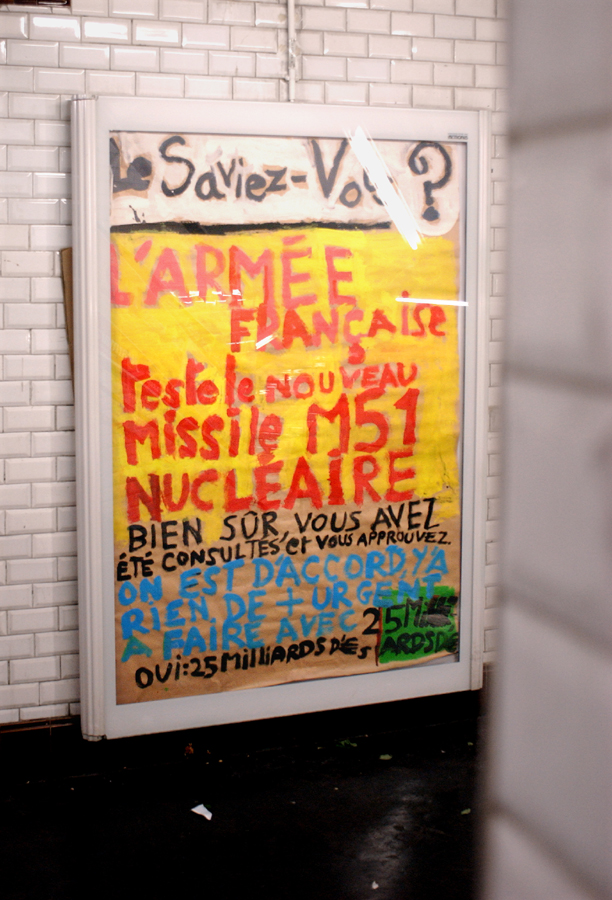 Le Saviez-Vous ?
L'ARMÉE
FRANÇAise
Teste le NOUVEAU
missile M51
NUCLÉAiRE
BiEN SÛR VOUS AVEZ
ÉTÉ CONSULTÉS et VOUS APPROUVEZ.
ON EST D'ACCORD, Y'A
RIEN DE + URGENT
À FAIRE AVEC 25 Milli
ARDS D'€
OUi: 25 MilliARDS D'€s